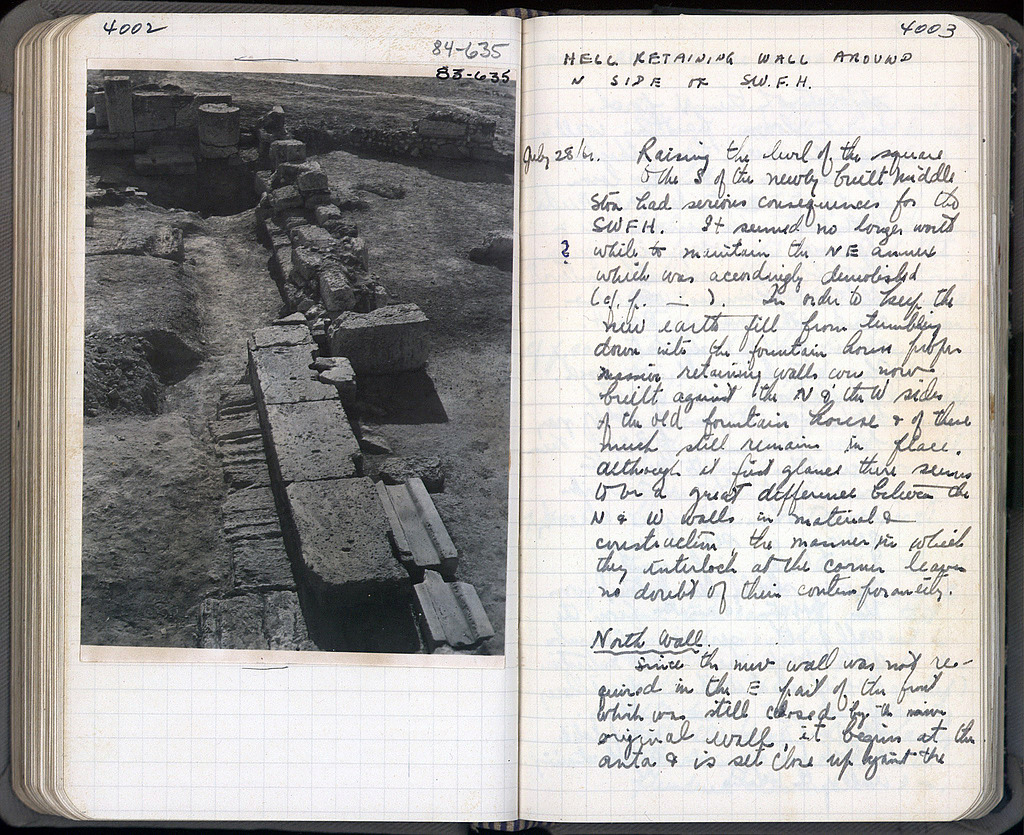 4002
84-635
83-635
4003
HELL RETAINING WALL AROUND
N SIDE OF S.W.F.H.
July 28/
Raising the level of the square
to the S of the newly built middle
Stoa had serious consequences for the
SWFH. It seemed no longer worth
? while to maintain the NE annex
which was accordingly demolished
(cf. p. — ). In order to keep the
new earth fill from tumbling
down into the fountain house proper
massive retaining walls were now
built against the N & the W sides
of the old fountain house & of these
much still remains in place.
Although at first glance there seems
to be a great difference between the
N & W walls in material &
construction, the manner in which
they interlock at the corner leaves
no doubt of their contemporaneity.
North Wall.
Since the new wall was not re-
quired in the E part of the front
which was still closed by the
original wall, it begins at the
anta & is set close up against the